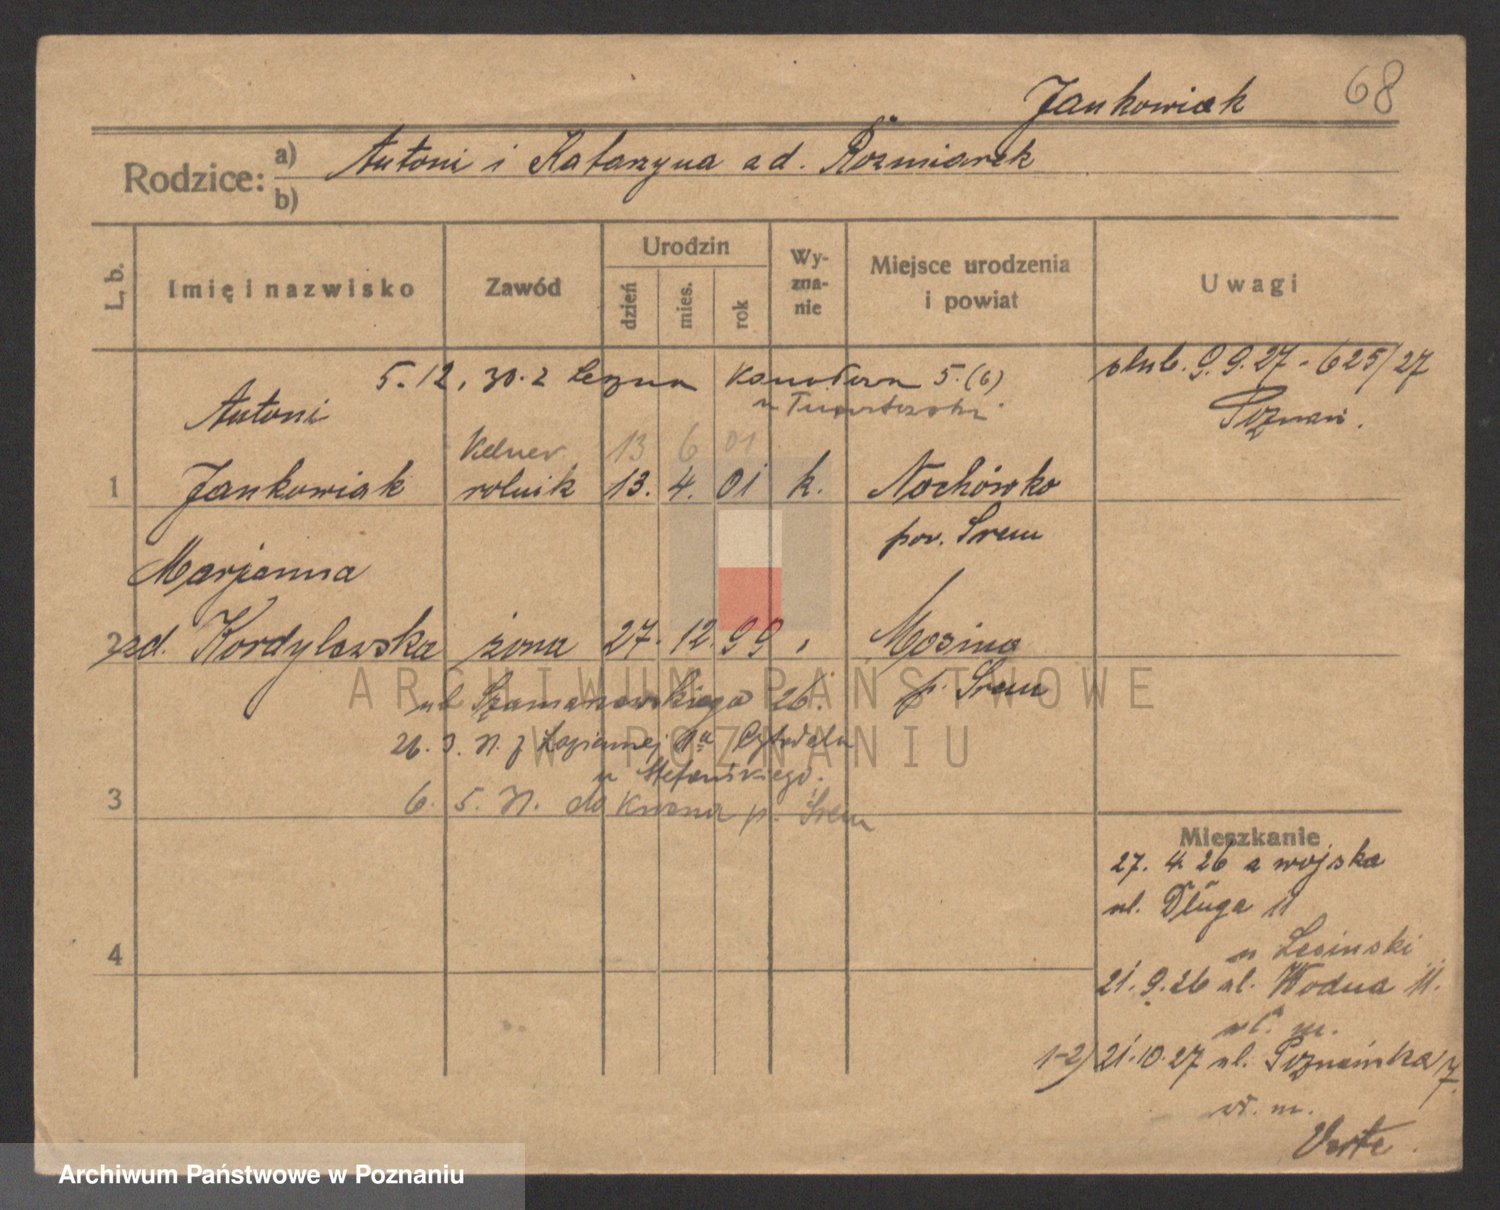 Jankowiak 68
Rodzice: a) Antoni i Katarzyna zd. Rozmiarek
b)
L. b. Imię i nazwisko Zawód Urodzin dzień mies. rok Wyznanie Miejsce urodzenia i powiat Uwagi
5.12.30. z Leszna 5. (6)
ślub. 9.9.27 - 625/27
Poznań.
Antoni
Kelner 13 6 01
1 Jankowiak rolnik 13. 4. 01 k. Nochówko
pow. Śrem
Marjanna
2 zd. Kordylewska żona 27. 12. 99 Mosina
p. Śrem
ul. Szamarzewskiego 26.
26. 3. 31. Cytadela
u Stefańskiego.
3
6. 5. 31. do p. Śrem
4
Mieszkanie
27. 4. 26 z wojska
ul. Długa 11
u Lesinski
21. 9. 26 ul. Wodna 11.
wł. m.
1-2) 21.10.27 ul. Poznańska 7.
wł. m.
Verte.
ARCHIWUM PAŃSTWOWE
W POZNANIU
Archiwum Państwowe w Poznaniu